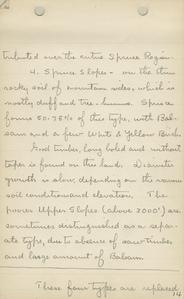 tributed over the entire Spruce Region.
4. Spruce Slopes - on the thin
rocky soil of mountain sides, which is
mostly duff and tree-humus. Spruce
forms 50-75% of this type, with Bal-
sam and a few White & Yellow Birch.
Good timber, long boled and without
taper is found on this land. Diameter
growth is slow, depending on the various
soil conditions and elevation. The
poorer Upper Slopes (above 3000') are
sometimes distinguished as a separ-
ate type, due to absence of saw timber
and large amount of Balsam.
These four types are replaced